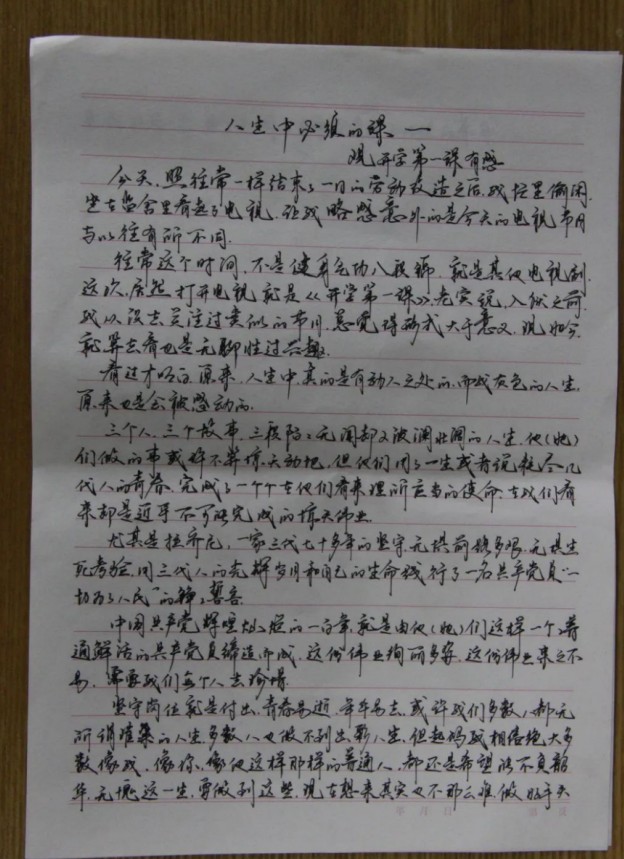 人生中必须的课 —
观开学第一课有感
今天,照往常一样结束了一日的劳动改造之后,我忙里偷闲,
坐在监舍里看起了电视,让我略感意外的是今天的电视节目
与以往有所不同.
往常这个时间,不是健身气功八段锦,就是其他电视剧,
这次,居然打开电视就是《开学第一课》,老实说,入狱之前,
我以没去关注过类似的节目,总觉得形式大于意义,现如今
就算去看也是无聊胜过兴趣.
看过才明白,原来,人生中真的是有动人之处的,而我灰色的人生,
原来也是会被感动的.
三个人,三个故事,三段陌陌无闻却又波澜壮阔的人生,他(她)
们做的事或许不算惊天动地,但他们用了一生或者说耗尽几
代人的青春,完成了一个个在他们看来理所应当的使命,在我们看
来却是近乎不可能完成的惊天伟业.
尤其是拉齐尼,一家三代七十多年的坚守,无惧前路多艰,无惧生
死考验,用三代人的光辉岁月和自己的生命践行了一名共产党员“一
切为了人民”的誓言.
中国共产党辉煌灿烂的一百年,就是由他(她)们这样一个个普
通鲜活的共产党员缔造而成,这份伟业绚丽多姿,这份伟业来之不
易,需要我们每个人去珍惜.
坚守岗位就是付出,青春易逝,年华易去,或许我们多数人都无
所谓准备的人生,多数人也做不到出彩人生,但起码我相信绝大多
数像我,像你,像他这样那样的普通人,都还是希望能不负韶
华,无愧这一生,要做到这些,现在想来其实也不那么难,做好每天
年 月 日